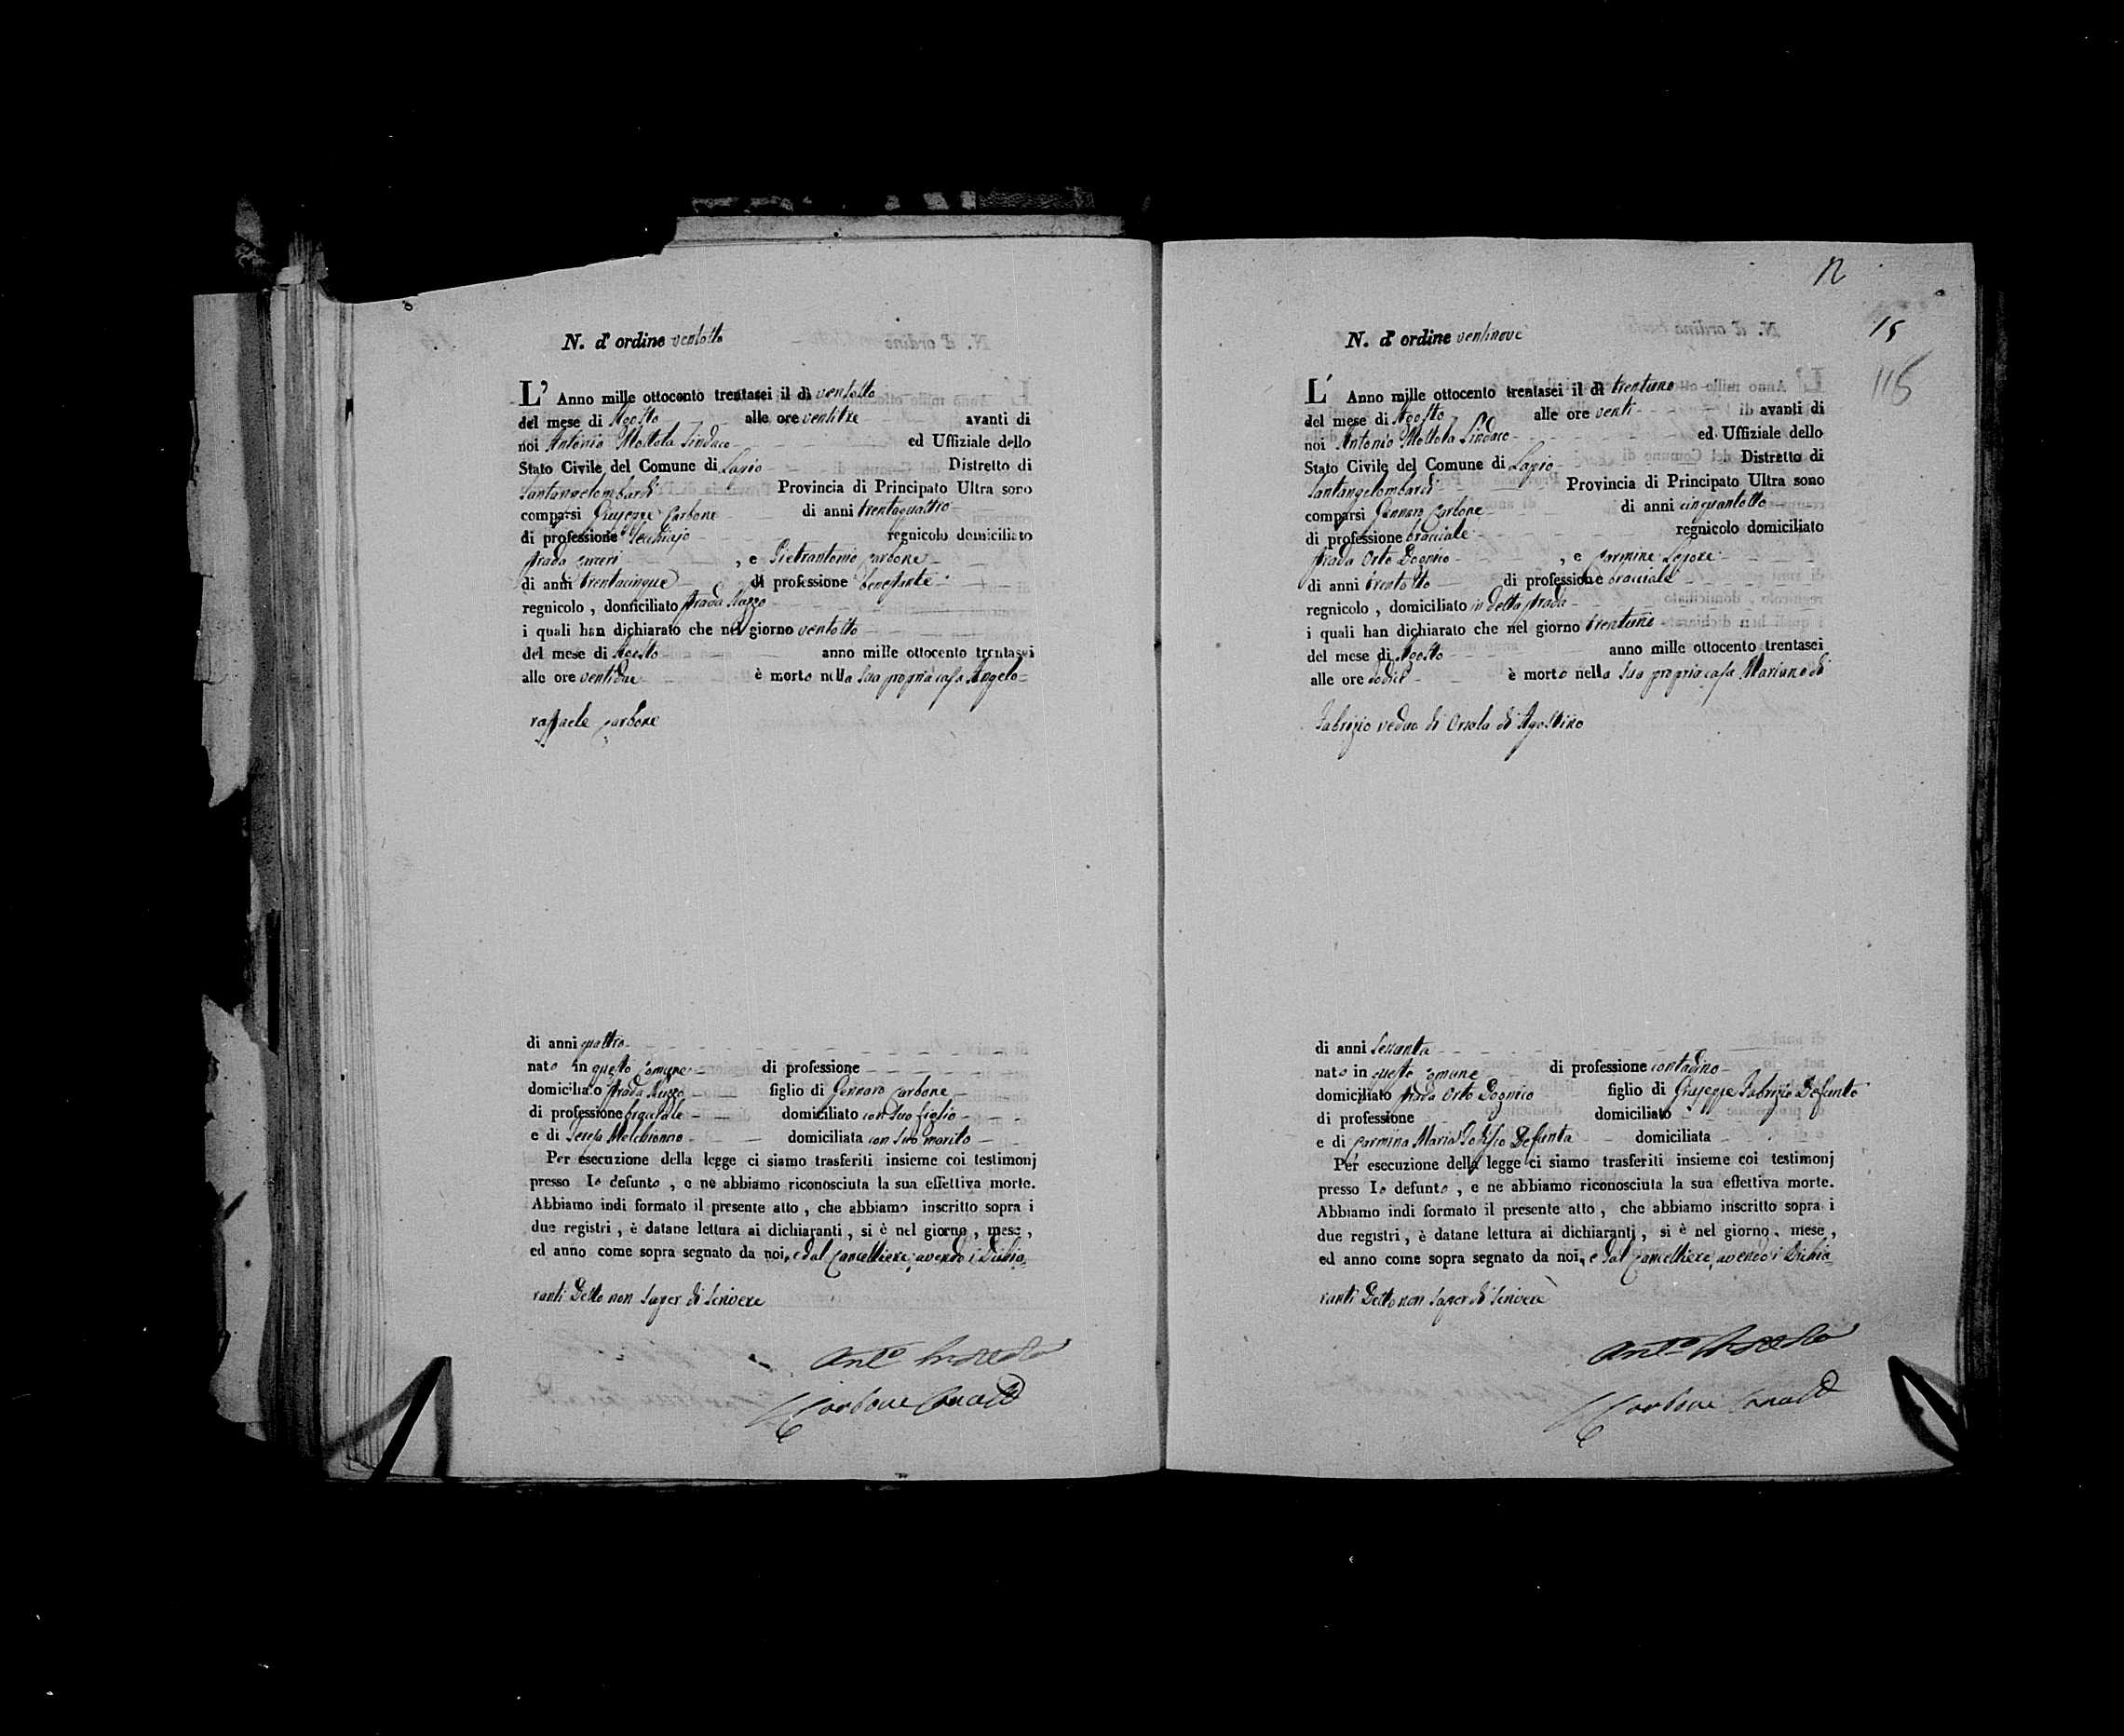 N. d' ordine ventotto
L' Anno mille ottocento trentasei il dì ventotto
del mese di Agosto alle ore ventitre avanti di
noi Antonio Mottola Sindaco ed Uffiziale dello
Stato Civile del Comune di Lapio Distretto di
Santangelombardi Provincia di Principato Ultra sono
comparsi Giuseppe Carbone di anni trentaquattro
di professione regnicolo domiciliato
strada carceri , e Pietrantonio Carbone
di anni trentacinque di professione benestante
regnicolo , domiciliato strada
i quali han dichiarato che nel giorno ventotto
del mese di Agosto anno mille ottocento trentasei
alle ore ventidue è morto nella sua propria casa Angelo=
raffaele Carbone
di anni quattro
nato in questo Comune di professione
domiciliato strada figlio di Gennaro Carbone
di professione bracciale domiciliato con suo figlio
e di Teresa Melchionno domiciliata con suo marito
Per esecuzione della legge ci siamo trasferiti insieme coi testimonj
presso lo defunto , e ne abbiamo riconosciuta la sua effettiva morte.
Abbiamo indi formato il presente atto , che abbiamo inscritto sopra i
due registri , è datane lettura ai dichiaranti , si è nel giorno , mese ,
ed anno come sopra segnato da noi, e dal Cancelliere, avendo i Dichia=
ranti Detto non saper di scrivere
Ant.o Mottola
Carbone Canc.
12
15
115
N. d' ordine ventinove
L' Anno mille ottocento trentasei il dì trentuno
del mese di Agosto alle ore venti avanti di
noi Antonio Mottola Sindaco ed Uffiziale dello
Stato Civile del Comune di Lapio Distretto di
Santangelombardi Provincia di Principato Ultra sono
comparsi Gennaro Carbone di anni cinquantotto
di professione bracciale regnicolo domiciliato
strada Orto Dognico , e Carmine Lepore
di anni trentotto di professione bracciale
regnicolo , domiciliato in detta strada
i quali han dichiarato che nel giorno trentuno
del mese di Agosto anno mille ottocento trentasei
alle ore dodici è morto nella sua propria casa Mariano di
Fabrizio vedovo di Orsola di Agostino
di anni sessanta
nato in questo Comune di professione contadino
domiciliato strada Orto Dognico figlio di Giuseppe Fabrizio Defunto
di professione domiciliato
e di Carmina Maria Defunta domiciliata
Per esecuzione della legge ci siamo trasferiti insieme coi testimonj
presso lo defunto , e ne abbiamo riconosciuta la sua effettiva morte.
Abbiamo indi formato il presente atto , che abbiamo inscritto sopra i
due registri , è datane lettura ai dichiaranti , si è nel giorno , mese ,
ed anno come sopra segnato da noi, e dal Cancelliere, avendo i Dichia=
ranti Detto non saper di scrivere
Ant.o Mottola
Carbone Canc.